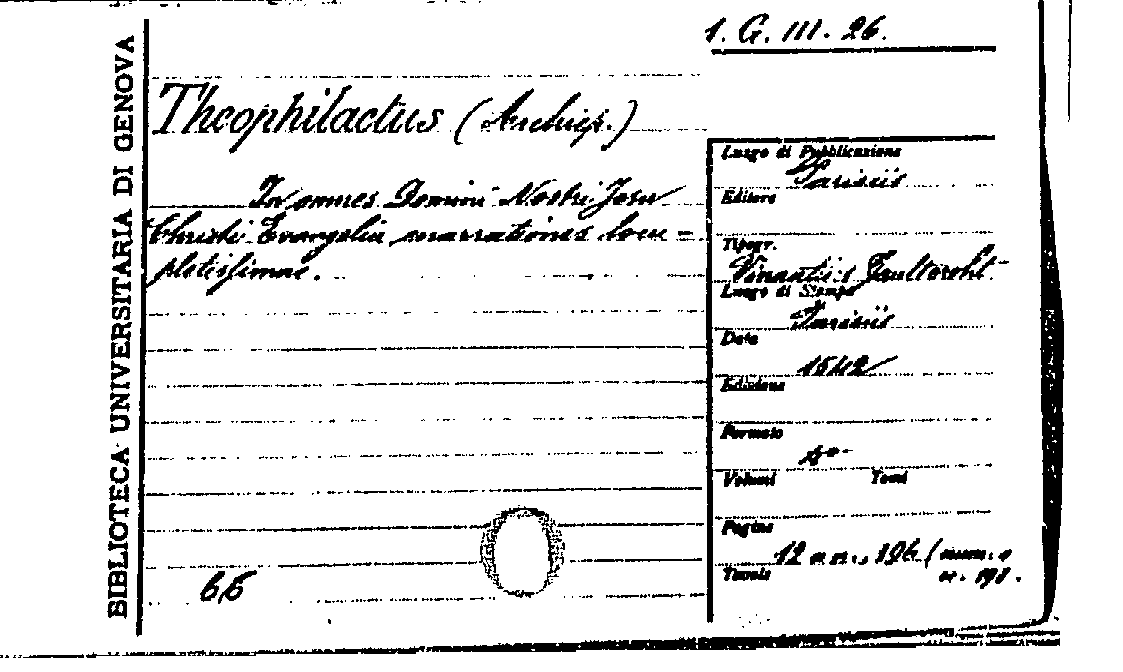 BIBLIOTECA UNIVERSITARIA DI GENOVA
1. G. III. 26.
Theophilactus (Archiep.)
In omnes Domini Nostri Jesu
Christi Evangelia enarrationes locu-
pletissimae.
66
Luogo di Pubblicazione
Parisiis
Editore
Tipogr.
Luogo di Stampa
Parisiis
Data
1542
Edizione
Formato
Volumi Tomi
Pagine
12 n. n., 196 (num. a
Tavole